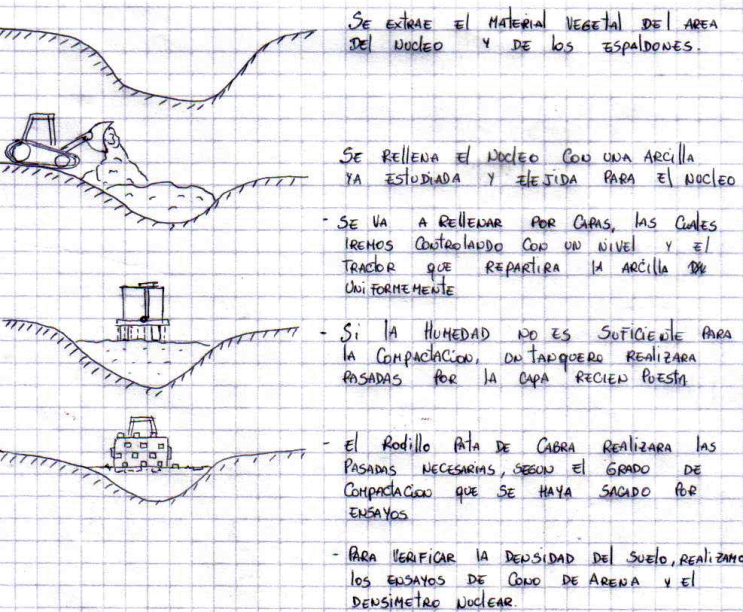 SE EXTRAE El MATERIAL VEGETAL DEl AREA
DEl NUCLEO Y DE los ESPALDONES.
SE RELLENA El NUCLEO CON UNA ARCILLA
YA ESTUDIADA Y ELEJIDA PARA El NUCLEO
- SE VA A RELLENAR POR CAPAS, LAS CUALES
IREMOS CONTROLANDO CON UN NIVEL Y El
TRACTOR QUE REPARTIRA LA ARCILLA
UNIFORMEMENTE
- Si LA HUMEDAD NO ES SUFICIENTE PARA
LA COMPACTACION, UN TANQUERO REALIZARA
PASADAS POR LA CAPA RECIEN PUESTA
- El Rodillo PATA DE CABRA REALIZARA LAS
PASADAS NECESARIAS, SEGUN El GRADO DE
COMPACTACION QUE SE HAYA SACADO POR
ENSAYOS
- PARA VERIFICAR LA DENSIDAD DEl SUELO, REALIZAMO
los ENSAYOS DE CONO DE ARENA Y El
DENSIMETRO NUCLEAR.